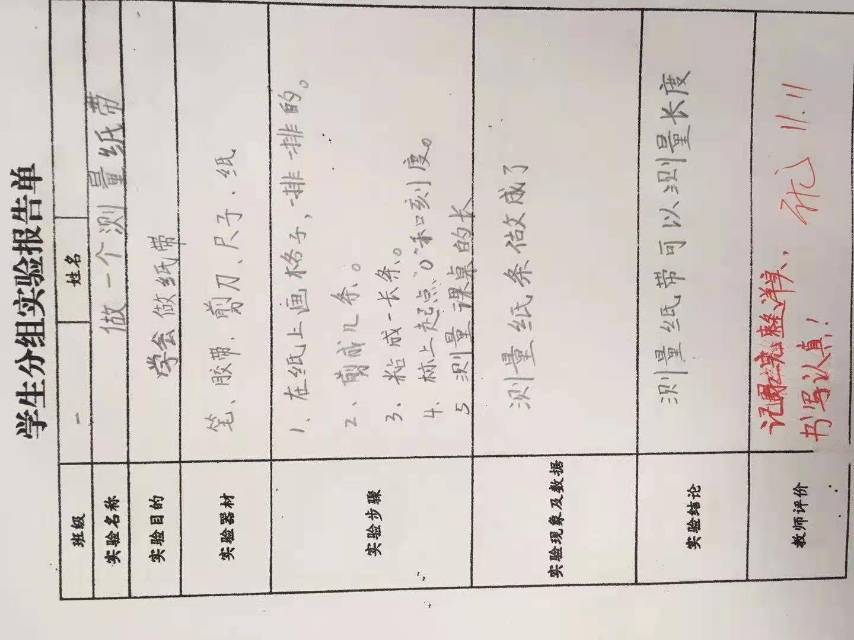 学生分组实验报告单
班级 一 姓名
实验名称 做一个测量纸带
实验目的 学会做纸带
实验器材 笔、胶带、剪刀、尺子、纸
实验步骤
1、在纸上画格子,一排一排的。
2、剪成几条。
3、粘成一长条。
4、标上起点“0”和刻度。
5 测量课桌的长
实验现象及数据 测量纸条做成了
实验结论 测量纸带可以测量长度
教师评价
记录完整详实,
书写认真!
11.11